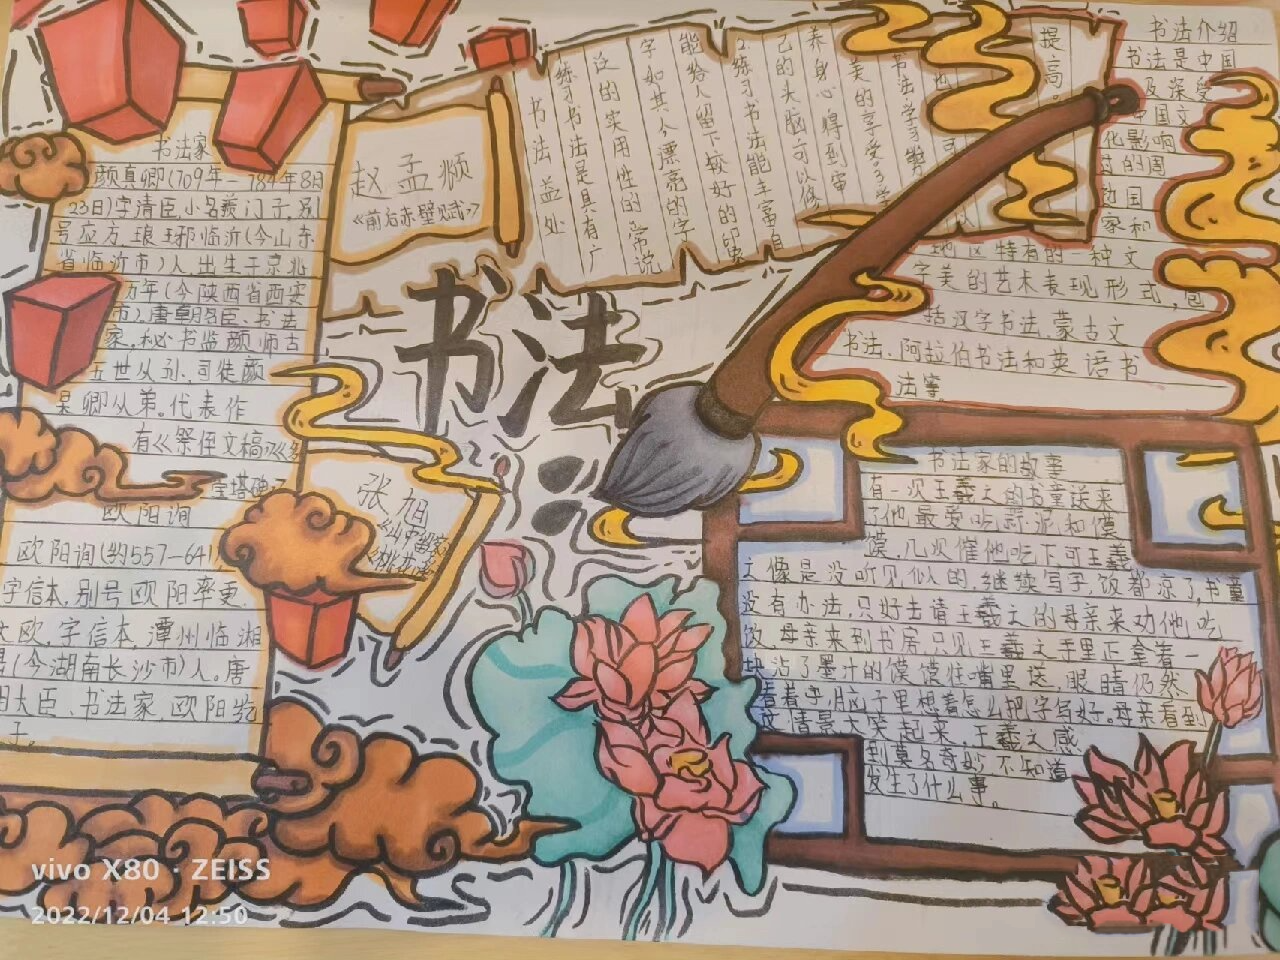 书法家
颜真卿(709年-784年8月
23日)字清臣,小名羡门子,别
号应方,琅玡临沂(今山东
省临沂市)人出生于京兆
万年(今陕西省西安
市),唐朝名臣、书法
家,秘书监颜师古
五世从孙,司徒颜
杲卿从弟。代表作
有《祭侄文稿》《多
宝塔碑》
欧阳询
欧阳询(约557-641)
字信本,别号欧阳率更,
大欧,字信本,潭州临湘
县(今湖南长沙市)人。唐
朝大臣、书法家,欧阳纥
子。
赵孟頫
《前后赤壁赋》
张旭
《山中留客》
《桃花溪》
书法
书法益处
练习书法是具有广
泛的实用性的,常说
字如其人漂亮的字
能给人留下较好的印象
2.练习书法能丰富自
己的头脑可以修
养身心,得到审
美的享受3.学
书法学习
也
提高。
书法介绍
书法是中国
及深受
中国文
化影响
过的周
边国
家和
地区特有的一种文
字美的艺术表现形式,包
括汉字书法、蒙古文
书法、阿拉伯书法和英语书
法等。
书法家的故事
有一次王羲之的书童送来
了他最爱吃蒜泥和馍
馍,几次催他吃下,可王羲
之像是没听见似的,继续写字,饭都凉了,书童
没有办法,只好去请王羲之的母亲来劝他吃
饭,母亲来到书房,只见王羲之手里正拿着一
块沾了墨汁的馍馍往嘴里送,眼睛仍然
看着字,脑子里想着怎么把字写好。母亲看到
这情景大笑起来,王羲之感
到莫名奇妙,不知道
发生了什么事。
vivo X80 · ZEISS
2022/12/04 12:50